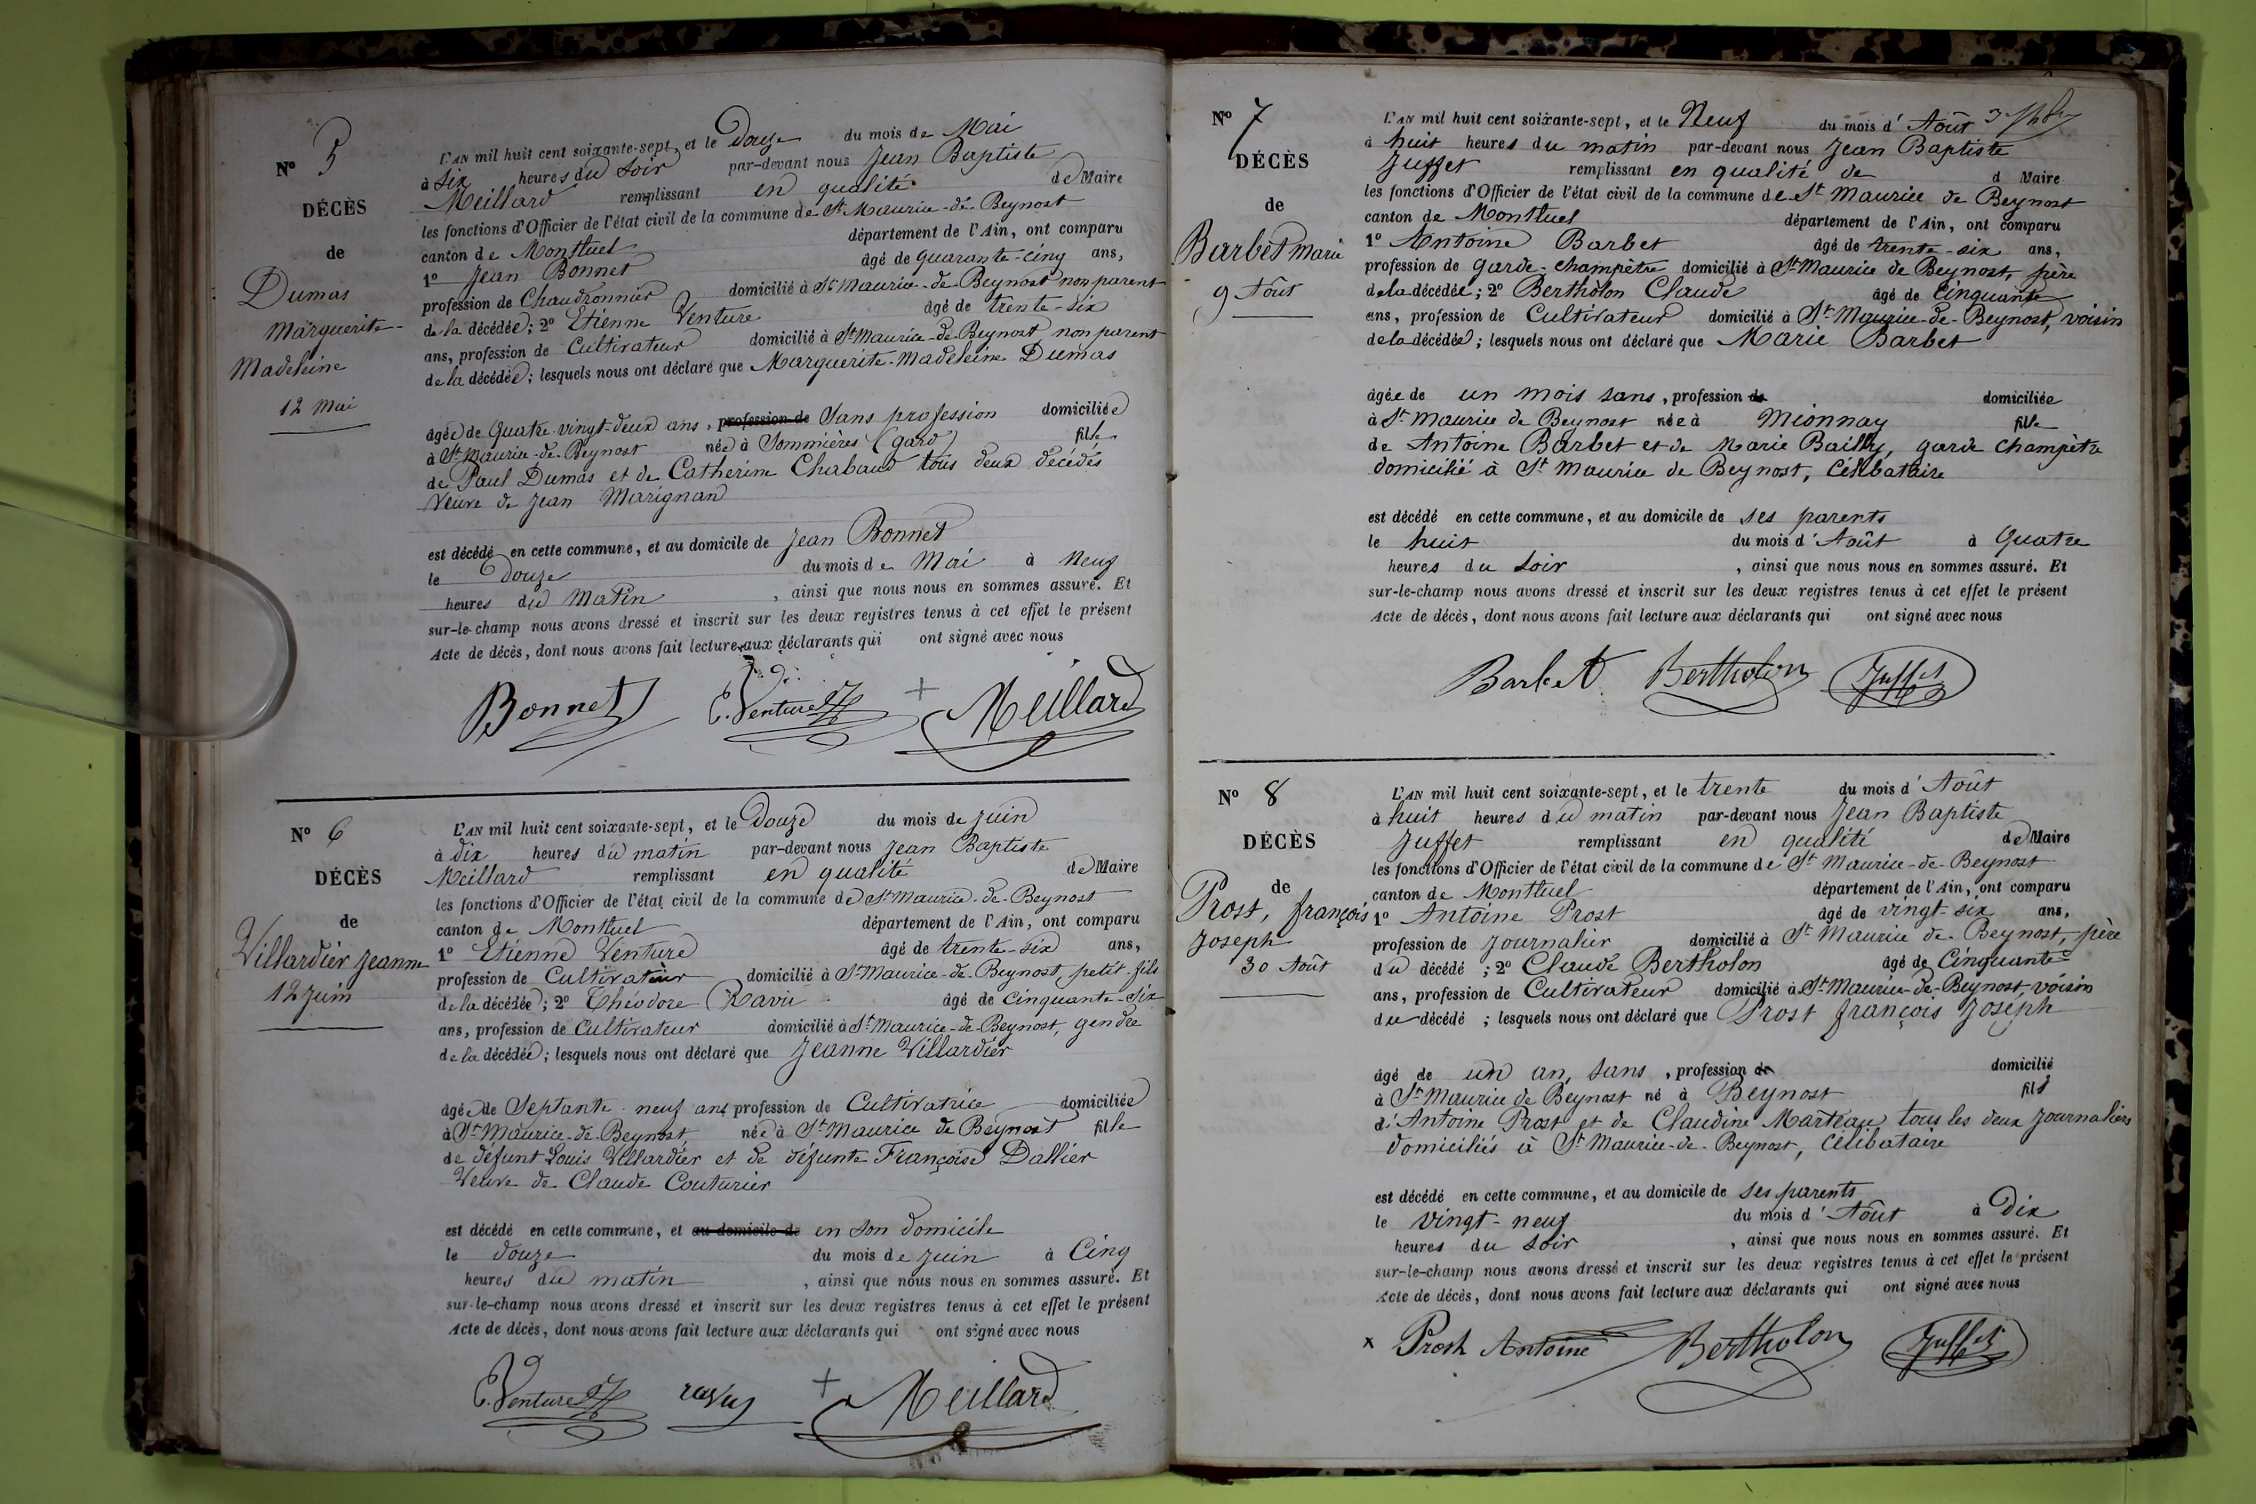 Nº 5
DÉCÈS
de
Dumas
Marguerite-
Madeleine
12 Mai
L'AN mil huit cent soixante-sept, et le Douze du mois de Mai
à six heures du soir par-devant nous Jean Baptiste
Meillard remplissant en qualité de Maire
les fonctions d'Officier de l'état civil de la commune de St Maurice-de-Beynost
canton de Montluel département de l'Ain, ont comparu
1º Jean Bonnet âgé de quarante-cinq ans,
profession de Chaudronnier domicilié à St Maurice-de-Beynost non parent
de la décédée; 2º Etienne Venture âgé de trente-six
ans, profession de Cultivateur domicilié à St Maurice-de-Beynost non parent
de la décédée; lesquels nous ont déclaré que Marguerite-Madeleine Dumas
âgée de Quatre vingt-deux ans, profession de Sans profession domiciliée
à St Maurice-de-Beynost née à Sommières (gard) fille
de Paul Dumas et de Catherine Chabaud tous deux décédés
Veuve de Jean Marignan
est décédé en cette commune, et au domicile de Jean Bonnet
le Douze du mois de Mai à Neuf
heures du Matin, ainsi que nous nous en sommes assuré. Et
sur-le-champ nous avons dressé et inscrit sur les deux registres tenus à cet effet le présent
Acte de décès, dont nous avons fait lecture aux déclarants qui ont signé avec nous
Bonnet E. Venture Meillard
Nº 6
DÉCÈS
de
Villardier Jeanne
12 Juin
L'AN mil huit cent soixante-sept, et le Douze du mois de Juin
à dix heures du matin par-devant nous Jean Baptiste
Meillard remplissant en qualité de Maire
les fonctions d'Officier de l'état civil de la commune de St Maurice-de-Beynost
canton de Montluel département de l'Ain, ont comparu
1º Etienne Venture âgé de trente-six ans,
profession de Cultivateur domicilié à St Maurice-de-Beynost, petit-fils
de la décédée; 2º Théodore Ravu âgé de cinquante-six
ans, profession de Cultivateur domicilié à St Maurice-de-Beynost, gendre
de la décédée; lesquels nous ont déclaré que Jeanne Villardier
âgée de Septante-neuf ans profession de Cultivatrice domiciliée
à St Maurice-de-Beynost, née à St Maurice de Beynost fille
de défunt Louis Villardier et de défunte Françoise Dallier
Veuve de Claude Couturier
est décédé en cette commune, et au domicile de en son domicile
le douze du mois de Juin à Cinq
heures du matin, ainsi que nous nous en sommes assuré. Et
sur-le-champ nous avons dressé et inscrit sur les deux registres tenus à cet effet le présent
Acte de décès, dont nous avons fait lecture aux déclarants qui ont signé avec nous
E. Venture ravu Meillard
Nº 7
DÉCÈS
de
Barbet Marie
9 Août
L'AN mil huit cent soixante-sept, et le Neuf du mois d'Août
à huit heures du matin par-devant nous Jean Baptiste
Juffet remplissant en qualité de d Maire
les fonctions d'Officier de l'état civil de la commune de St Maurice de Beynost
canton de Montluel département de l'Ain, ont comparu
1º Antoine Barbet âgé de trente-six ans,
profession de garde-champêtre domicilié à St Maurice de Beynost, père
de la décédée; 2º Bertholon Claude âgé de Cinquante
ans, profession de Cultivateur domicilié à St Maurice-de-Beynost, voisin
de la décédée; lesquels nous ont déclaré que Marie Barbet
âgée de un mois sans, profession de domiciliée
à St Maurice de Beynost née à Mionnay fille
de Antoine Barbet et de Marie Bailly, garde champêtre
domicilié à St Maurice de Beynost, Célibataire
est décédé en cette commune, et au domicile de ses parents
le huit du mois d'Août à Quatre
heures du soir, ainsi que nous nous en sommes assuré. Et
sur-le-champ nous avons dressé et inscrit sur les deux registres tenus à cet effet le présent
Acte de décès, dont nous avons fait lecture aux déclarants qui ont signé avec nous
Barbet Bertholon Juffet
Nº 8
DÉCÈS
de
Prost, françois
Joseph
30 Août
L'AN mil huit cent soixante-sept, et le trente du mois d'Août
à huit heures du matin par-devant nous Jean Baptiste
Juffet remplissant en qualité de Maire
les fonctions d'Officier de l'état civil de la commune de St Maurice-de-Beynost
canton de Montluel département de l'Ain, ont comparu
1º Antoine Prost âgé de vingt-six ans,
profession de Journalier domicilié à St Maurice de Beynost, père
du décédé; 2º Claude Bertholon âgé de Cinquante
ans, profession de Cultivateur domicilié à St Maurice-de-Beynost, voisin
du décédé; lesquels nous ont déclaré que Prost françois Joseph
âgé de un an, sans, profession de domicilié
à St Maurice de Beynost né à Beynost fils
d'Antoine Prost et de Claudine Marteau tous les deux Journaliers
domiciliés à St Maurice-de-Beynost, Célibataire
est décédé en cette commune, et au domicile de ses parents
le vingt-neuf du mois d'Août à Dix
heures du soir, ainsi que nous nous en sommes assuré. Et
sur-le-champ nous avons dressé et inscrit sur les deux registres tenus à cet effet le présent
Acte de décès, dont nous avons fait lecture aux déclarants qui ont signé avec nous
x Prost Antoine Bertholon Juffet